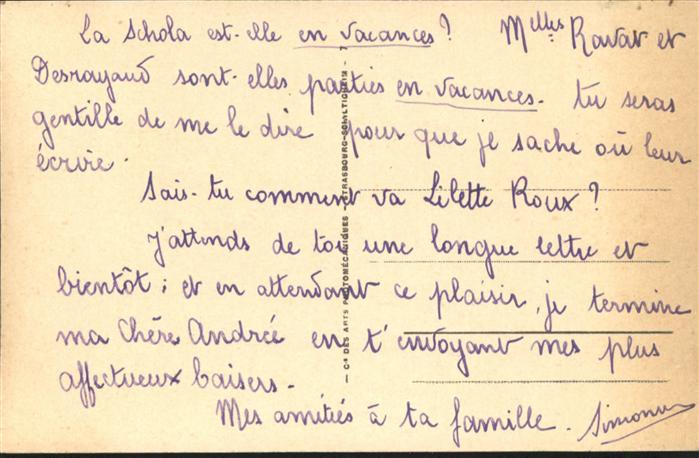 La Schola est-elle en vacances ? Melles Ravat et
Desrayaud sont-elles parties en vacances. tu seras
gentille de me le dire pour que je sache où leur
écrire.
Sais-tu comment va Lilette Roux ?
J'attends de toi une longue lettre et
bientôt ; et en attendant ce plaisir, je termine
ma Chère Andrée en t'envoyant mes plus
affectueux baisers.
Mes amitiés à ta famille. Simonne
— Cie DES ARTS PHOTOMÉCANIQUES - STRASBOURG-SCHILTIGHEIM - 7